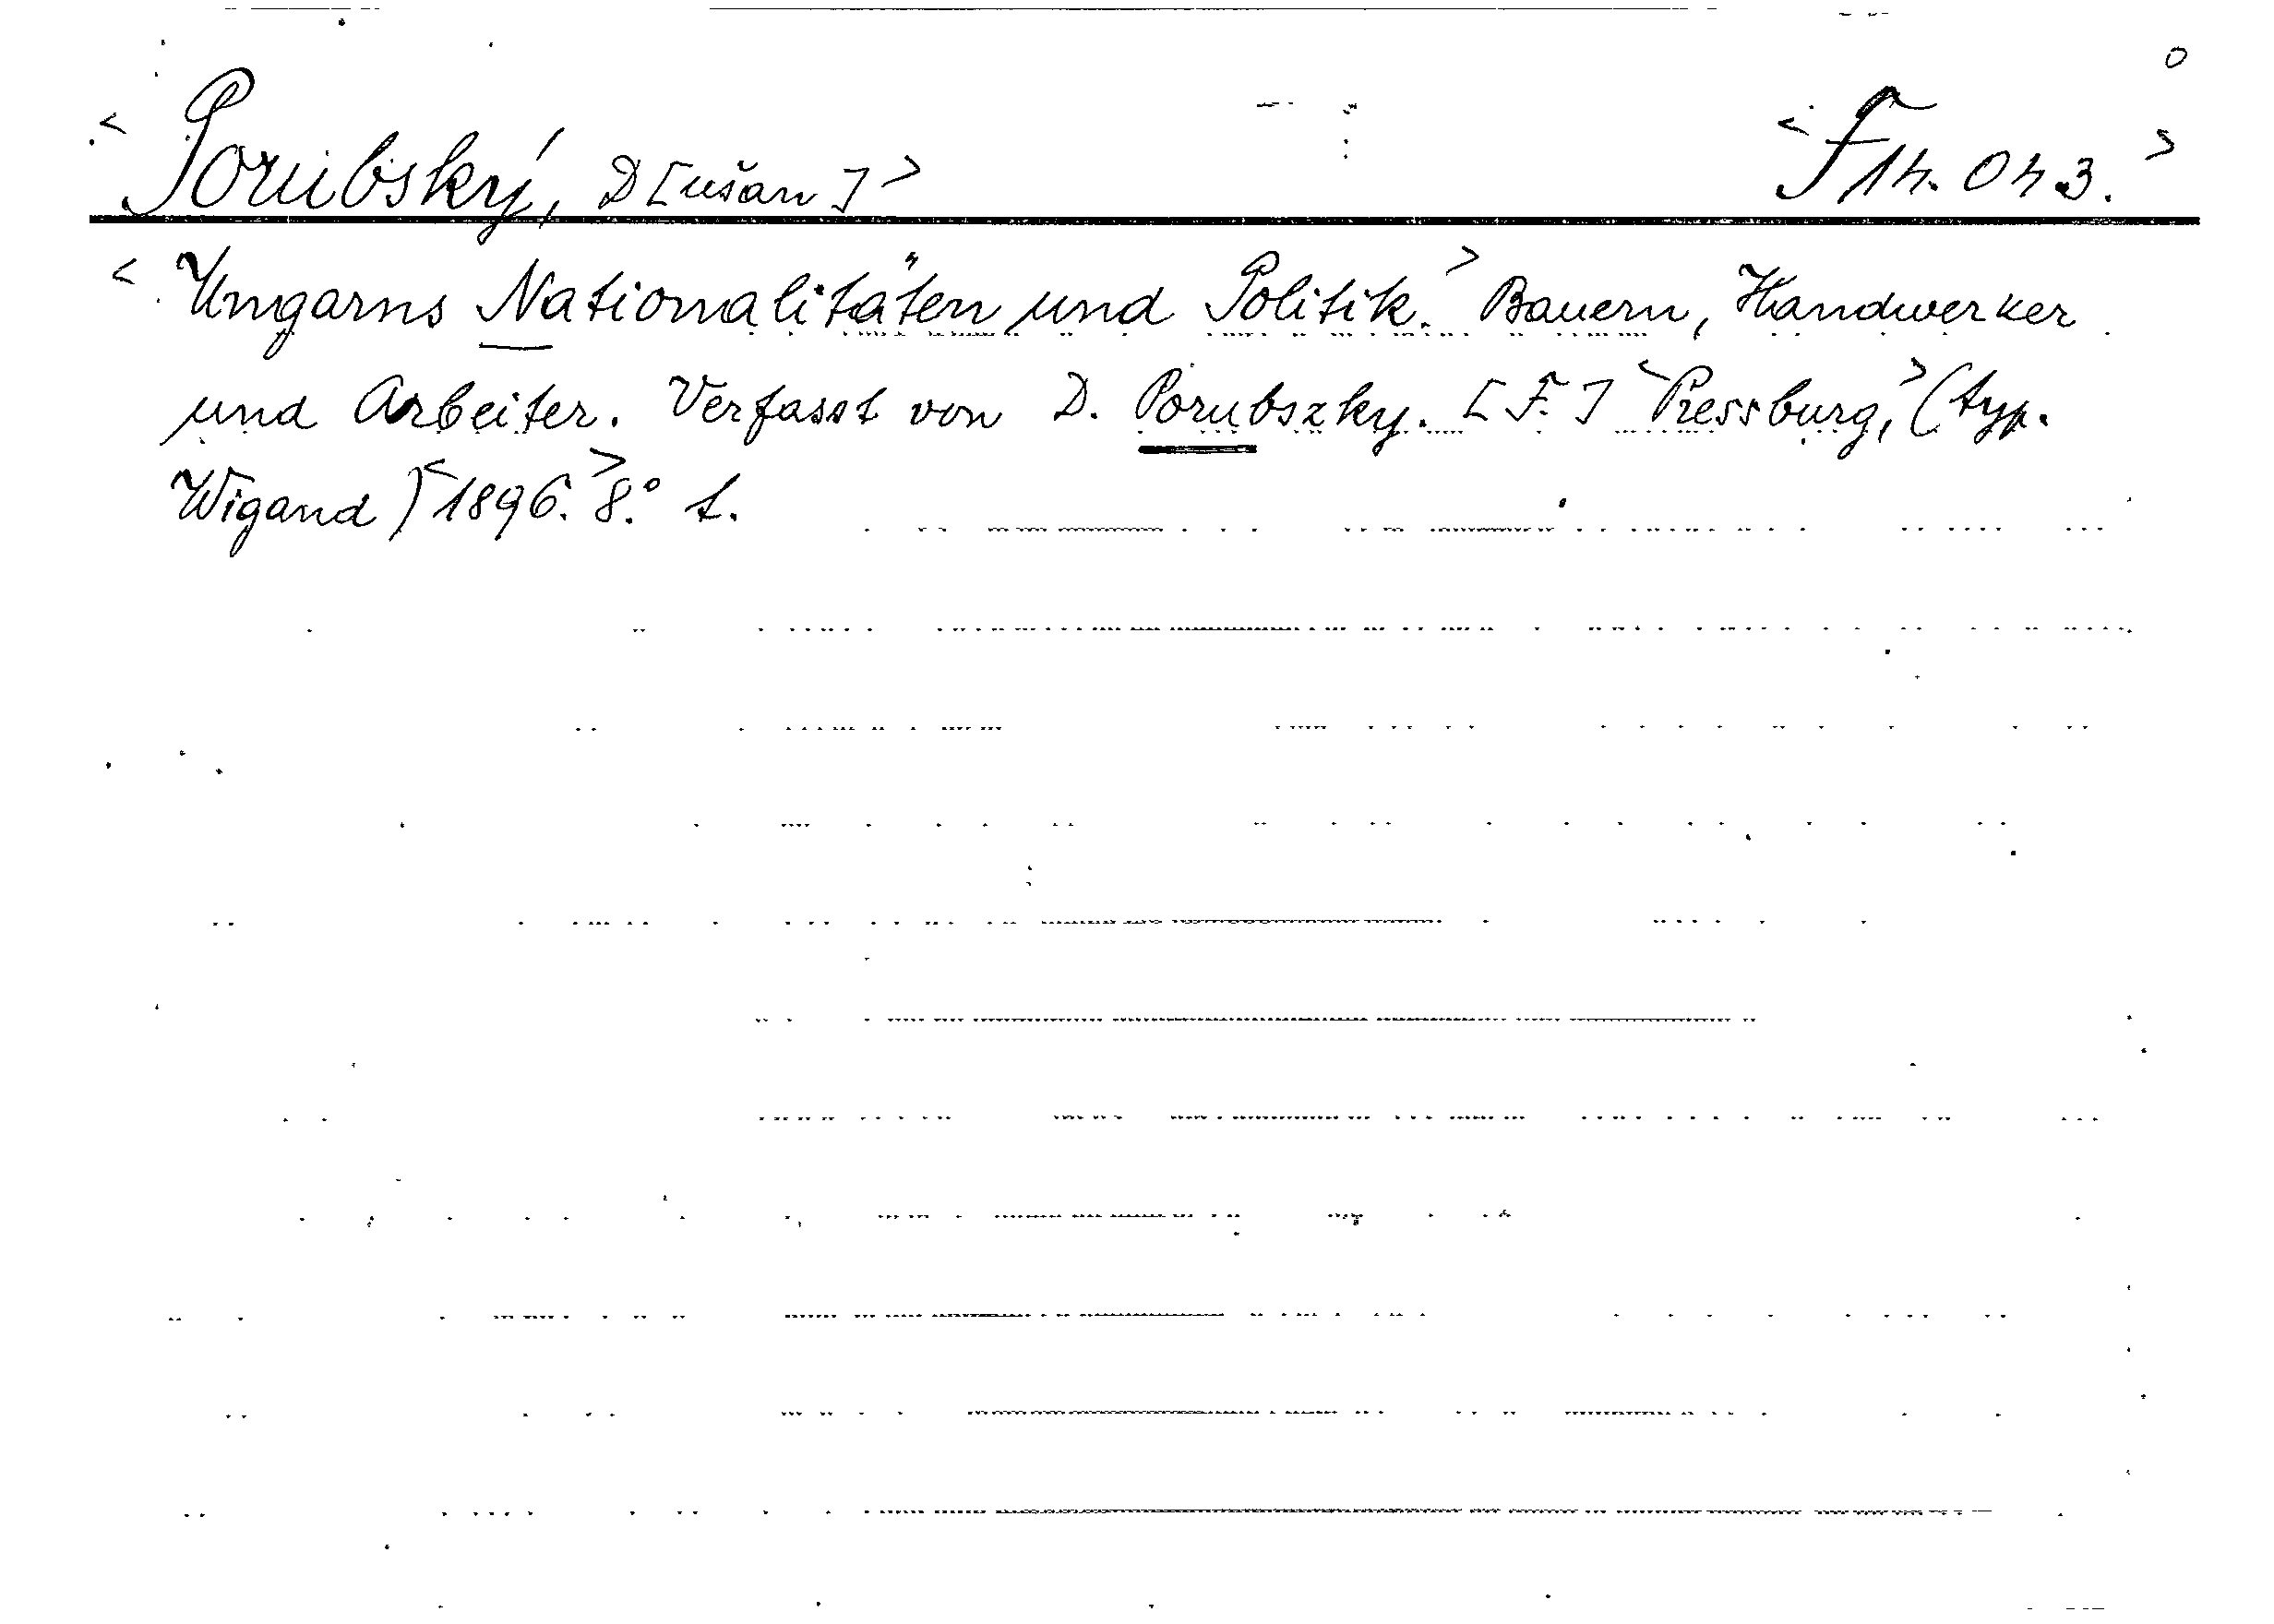 <Porubský, D[ušan]> <F 14.043.>
<Ungarns Nationalitäten und Politik.> Bauern, Handwerker
und Arbeiter. Verfasst von D. Porubszky. [F.] <Pressburg,> (typ.
Wigand) <1896.> 8.° t.